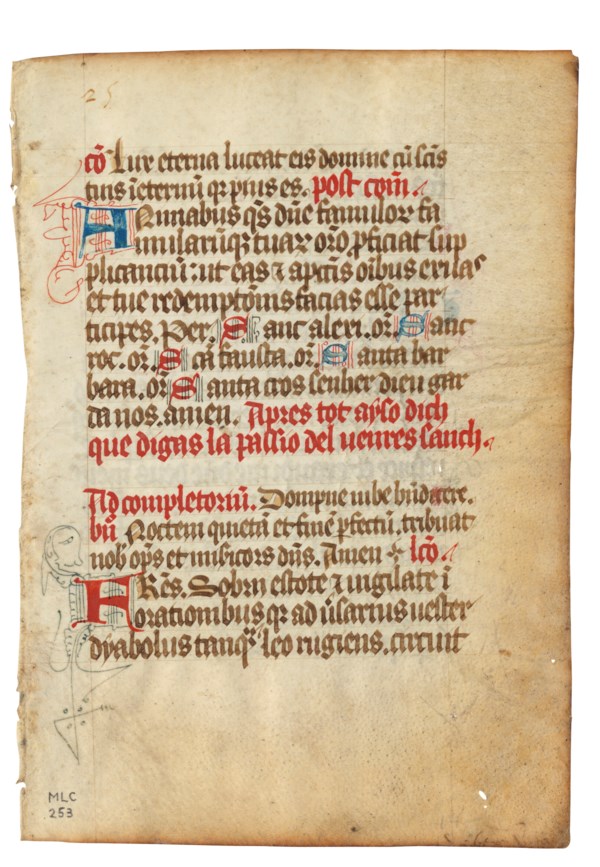 25
cō Lux eterna luceat eis domine cū scīs
tuis ī eternū qr pius es. post com̄.
Animabus qs dn̄e famulor fa
mularūqꝫ tuaꝝ orō p̄ficiat sup
plicanciū: ut eas ⁊ a pctīs oībus exuas
et tue redemptōnis facias esse par
ticipes. Per. Sanc alexi. or̄. Sanc
roc. or̄. Scā fausta. or̄. Santa bar
bara. or̄. Santa cros senher dieu gar
da nos. amen. Apres tot ayso dich
que digas la passio del uenres sanch.
Ad completoriū. Dompne iube bn̄dicere.
bn̄ Noctem quietā et finē pfectū. tribuat
nob̄ op̄s et misicors dn̄s. Amen lc̄o.
FRēs. Sobrij estote ⁊ uigilate ī
orationibus qr aduīsarius uester
dyabolus tanqȝ leo rugiens. circuit
MLC
253